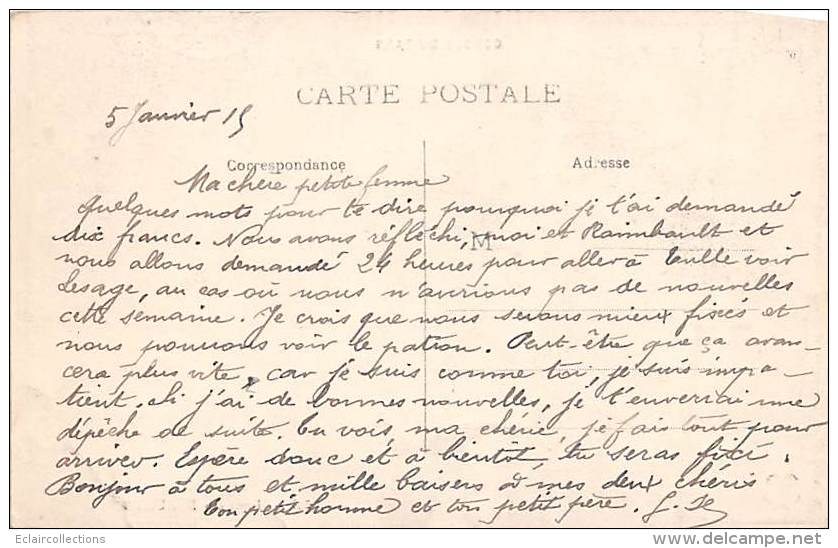 CARTE POSTALE
5 Janvier 15
Correspondance
Adresse
Ma chère petite femme
Quelques mots pour te dire pourquoi je t'ai demandé
dix francs. Nous avons réfléchi, moi et Raimbault et
M
nous allons demandé 24 heures pour aller à Tulle voir
Lesage, au cas où nous n'aurions pas de nouvelles
cette semaine. Je crois que nous serons mieux fixés et
nous pourrons voir le patron. Peut-être que ça avan-
cera plus vite, car je suis comme toi, je suis impa-
tient. Si j'ai de bonnes nouvelles, je t'enverrai une
dépêche de suite. Tu vois, ma chérie, je fais tout pour
arriver. Espère donc et à bientôt, tu seras fixé.
Bonjour à tous et mille baisers à mes deux chéris
Ton petit homme et ton petit père.
Eclaircollections
delcampe.net